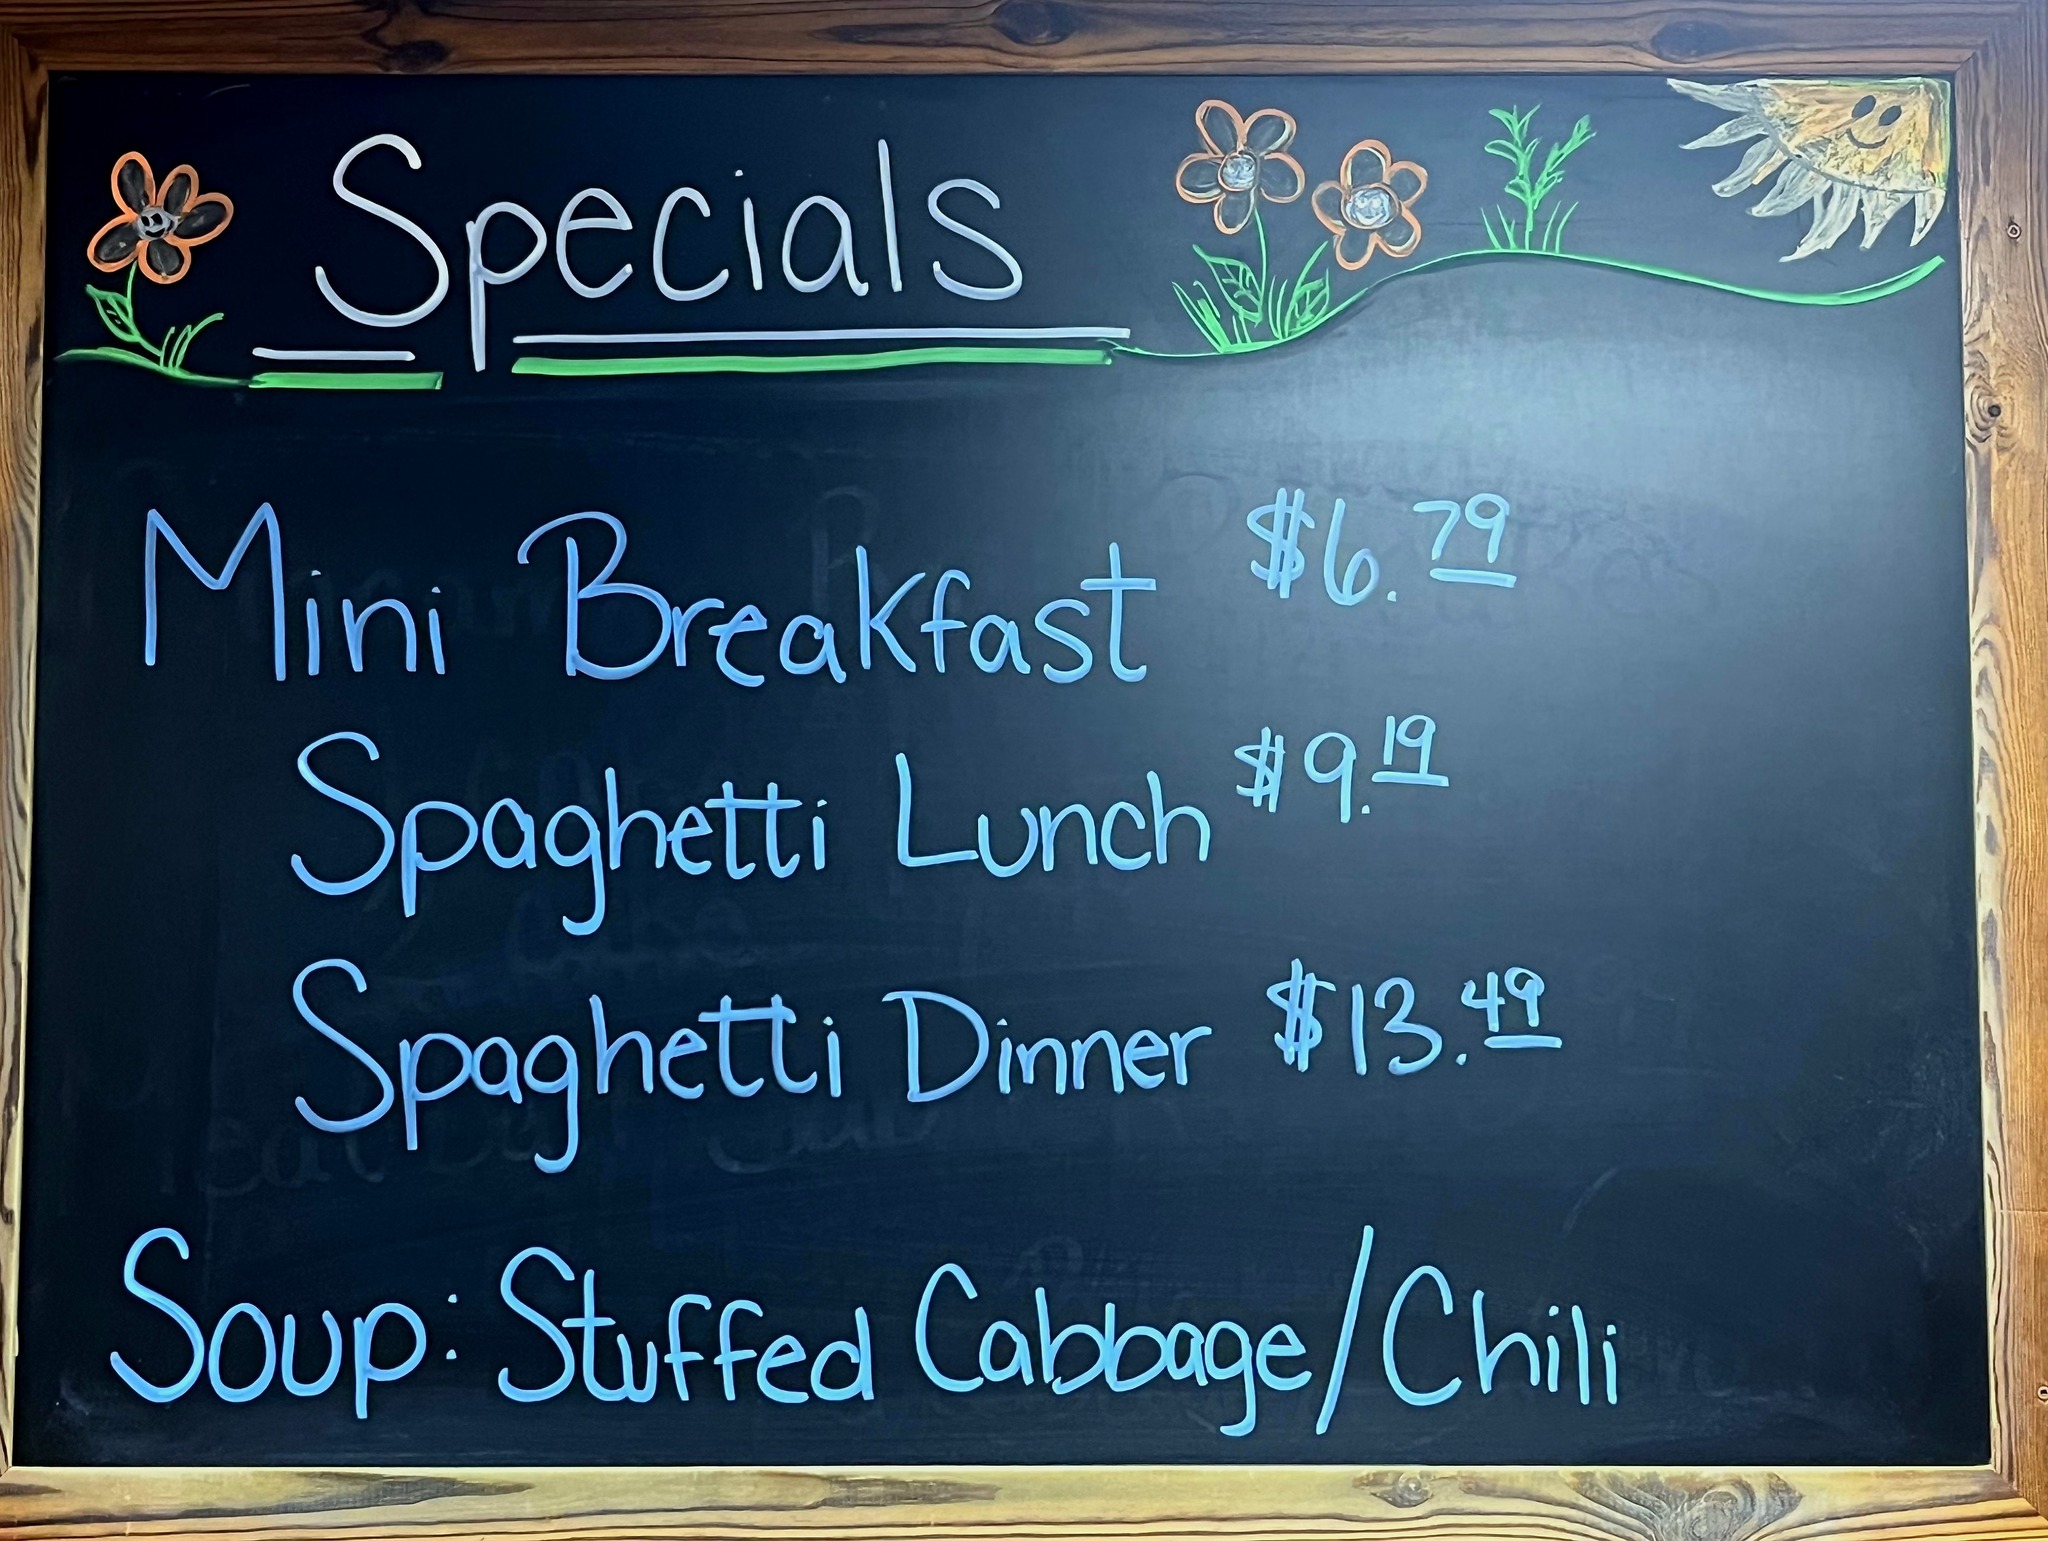 Specials
Mini Breakfast $6.79
Spaghetti Lunch $9.19
Spaghetti Dinner $13.49
Soup: Stuffed Cabbage/Chili